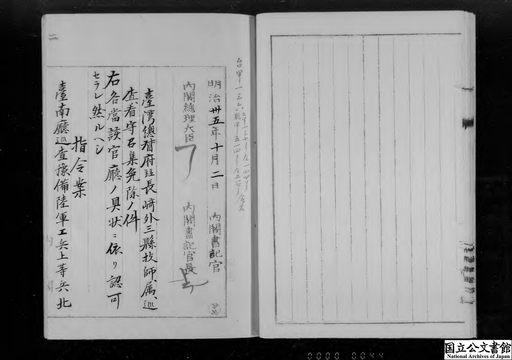 明治卅五年十月二日
内閣書記官
内閣総理大臣
内閣書記官長
臺灣總督府竝長崎外三縣技師、属、巡
査、看守召集免除ノ件
右各當該官廳ノ具状ニ依リ認可
セラレ然ルヘシ
指令案
臺南廳巡査豫備陸軍工兵上等兵北
二
0000 0044
国立公文書館
National Archives of Japan